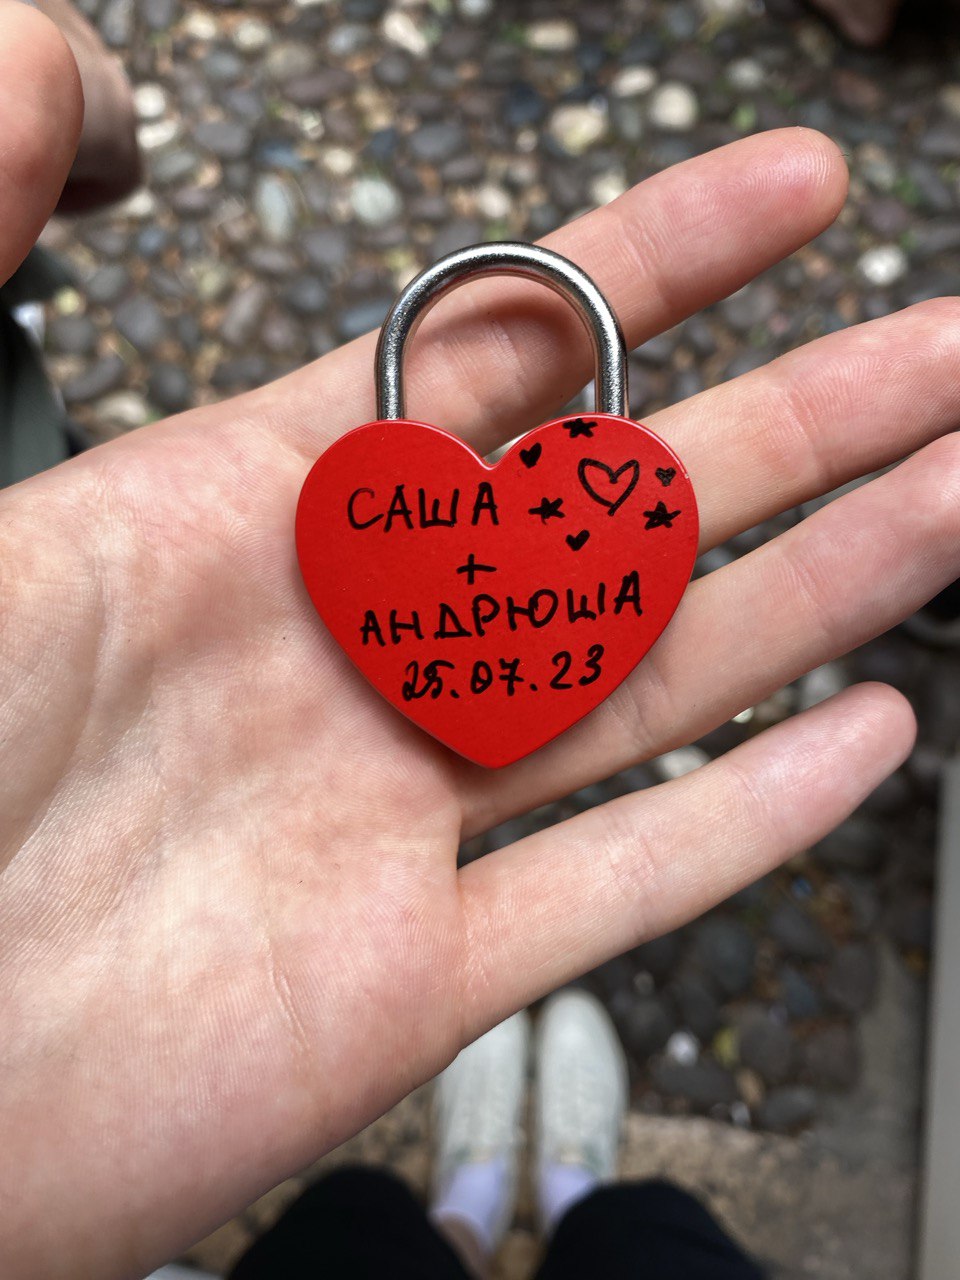 САША
+
АНДРЮША
25.07.23